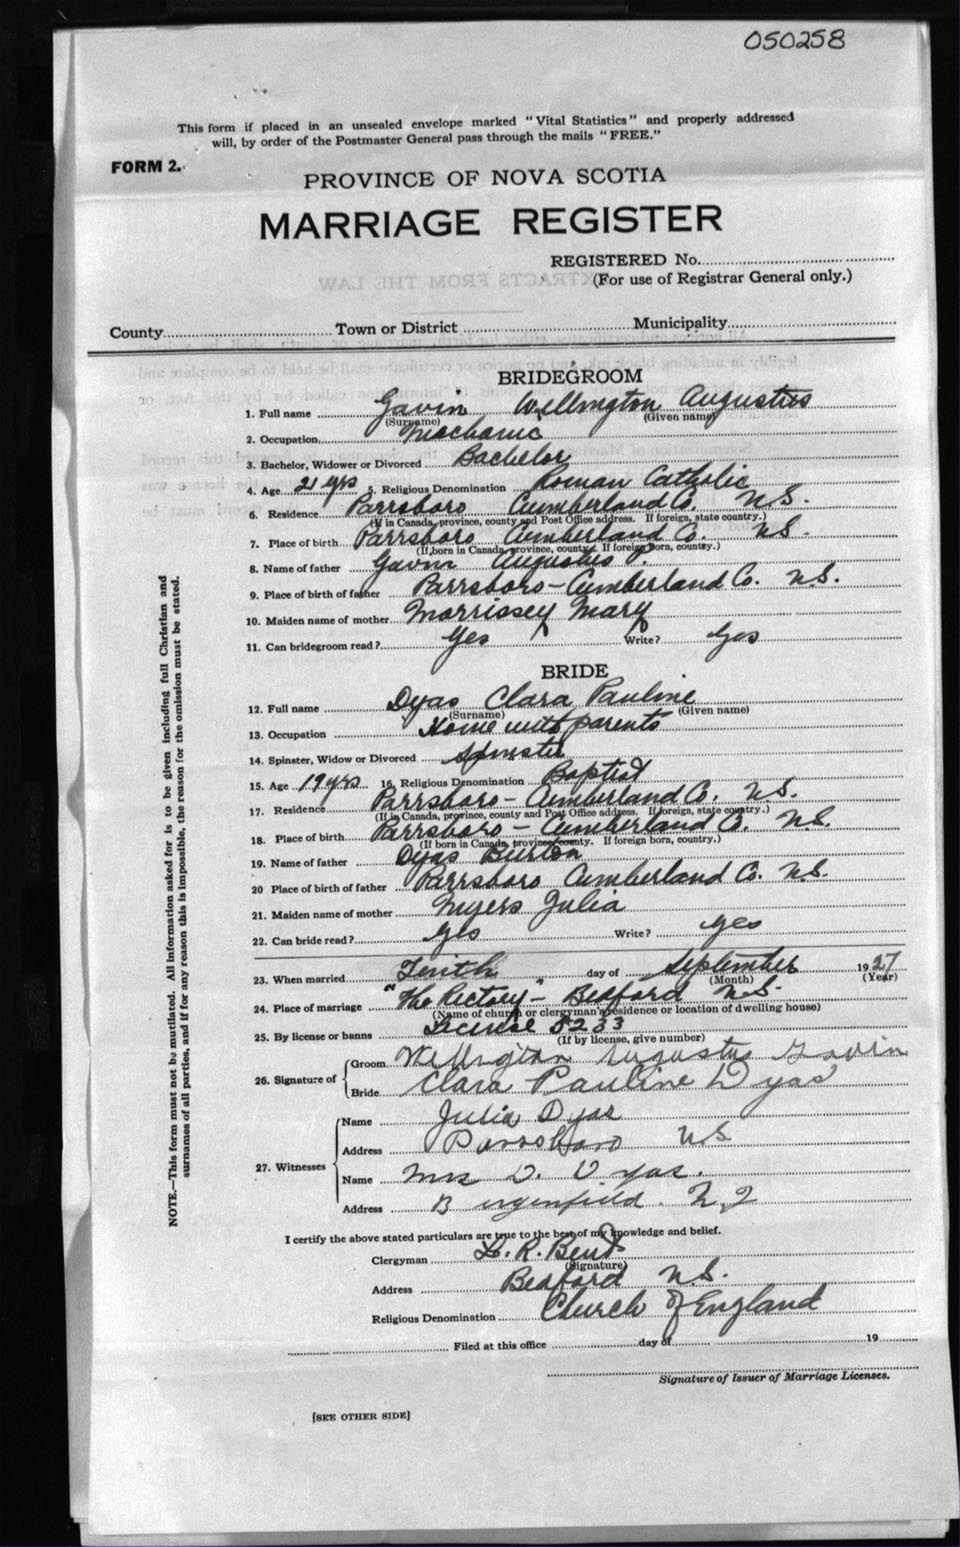 050258
This form if placed in an unsealed envelope marked "Vital Statistics" and properly addressed
will, by order of the Postmaster General pass through the mails "FREE."
FORM 2.
PROVINCE OF NOVA SCOTIA
MARRIAGE REGISTER
REGISTERED No.
(For use of Registrar General only.)
County Town or District Municipality
BRIDEGROOM
1. Full name Gavin Wellington Augustus
(Surname) (Given name)
2. Occupation Mechanic
3. Bachelor, Widower or Divorced Bachelor
4. Age 21 yrs 5. Religious Denomination Roman Catholic
6. Residence Parrsboro Cumberland Co. N.S.
(If in Canada, province, county and Post Office address. If foreign, state country.)
7. Place of birth Parrsboro Cumberland Co. N.S.
(If born in Canada, province, county. If foreign born, country.)
8. Name of father Gavin Augustus P.
9. Place of birth of father Parrsboro - Cumberland Co. N.S.
10. Maiden name of mother Morrissey Mary
11. Can bridegroom read? Yes Write? Yes
BRIDE
12. Full name Dyas Clara Pauline
(Surname) (Given name)
13. Occupation Home with parents
14. Spinster, Widow or Divorced Spinster
15. Age 19 yrs 16. Religious Denomination Baptist
17. Residence Parrsboro - Cumberland Co. N.S.
(If in Canada, province, county and Post Office address. If foreign, state country.)
18. Place of birth Parrsboro - Cumberland Co. N.S.
(If born in Canada, province, county. If foreign born, country.)
19. Name of father Dyas Burton
20 Place of birth of father Parrsboro Cumberland Co. N.S.
21. Maiden name of mother Myers Julia
22. Can bride read? Yes Write? Yes
23. When married Tenth day of September 1927
(Month) (Year)
24. Place of marriage "The Rectory" - Bedford N.S.
(Name of church or clergyman's residence or location of dwelling house)
25. By license or banns License 5233
(If by license, give number)
26. Signature of
Groom Wellington Augustus Gavin
Bride Clara Pauline Dyas
27. Witnesses
Name Julia Dyas
Address Parrsboro N.S.
Name Mrs D. Dyas.
Address Bergenfield. N.J
I certify the above stated particulars are true to the best of my knowledge and belief.
Clergyman R. Bent
(Signature)
Address Bedford N.S.
Religious Denomination Church of England
Filed at this office day of 19
Signature of Issuer of Marriage Licenses.
[SEE OTHER SIDE]
NOTE.—This form must not be mutilated. All information asked for is to be given including full Christian and
surnames of all parties, and if for any reason this is impossible, the reason for the omission must be stated.